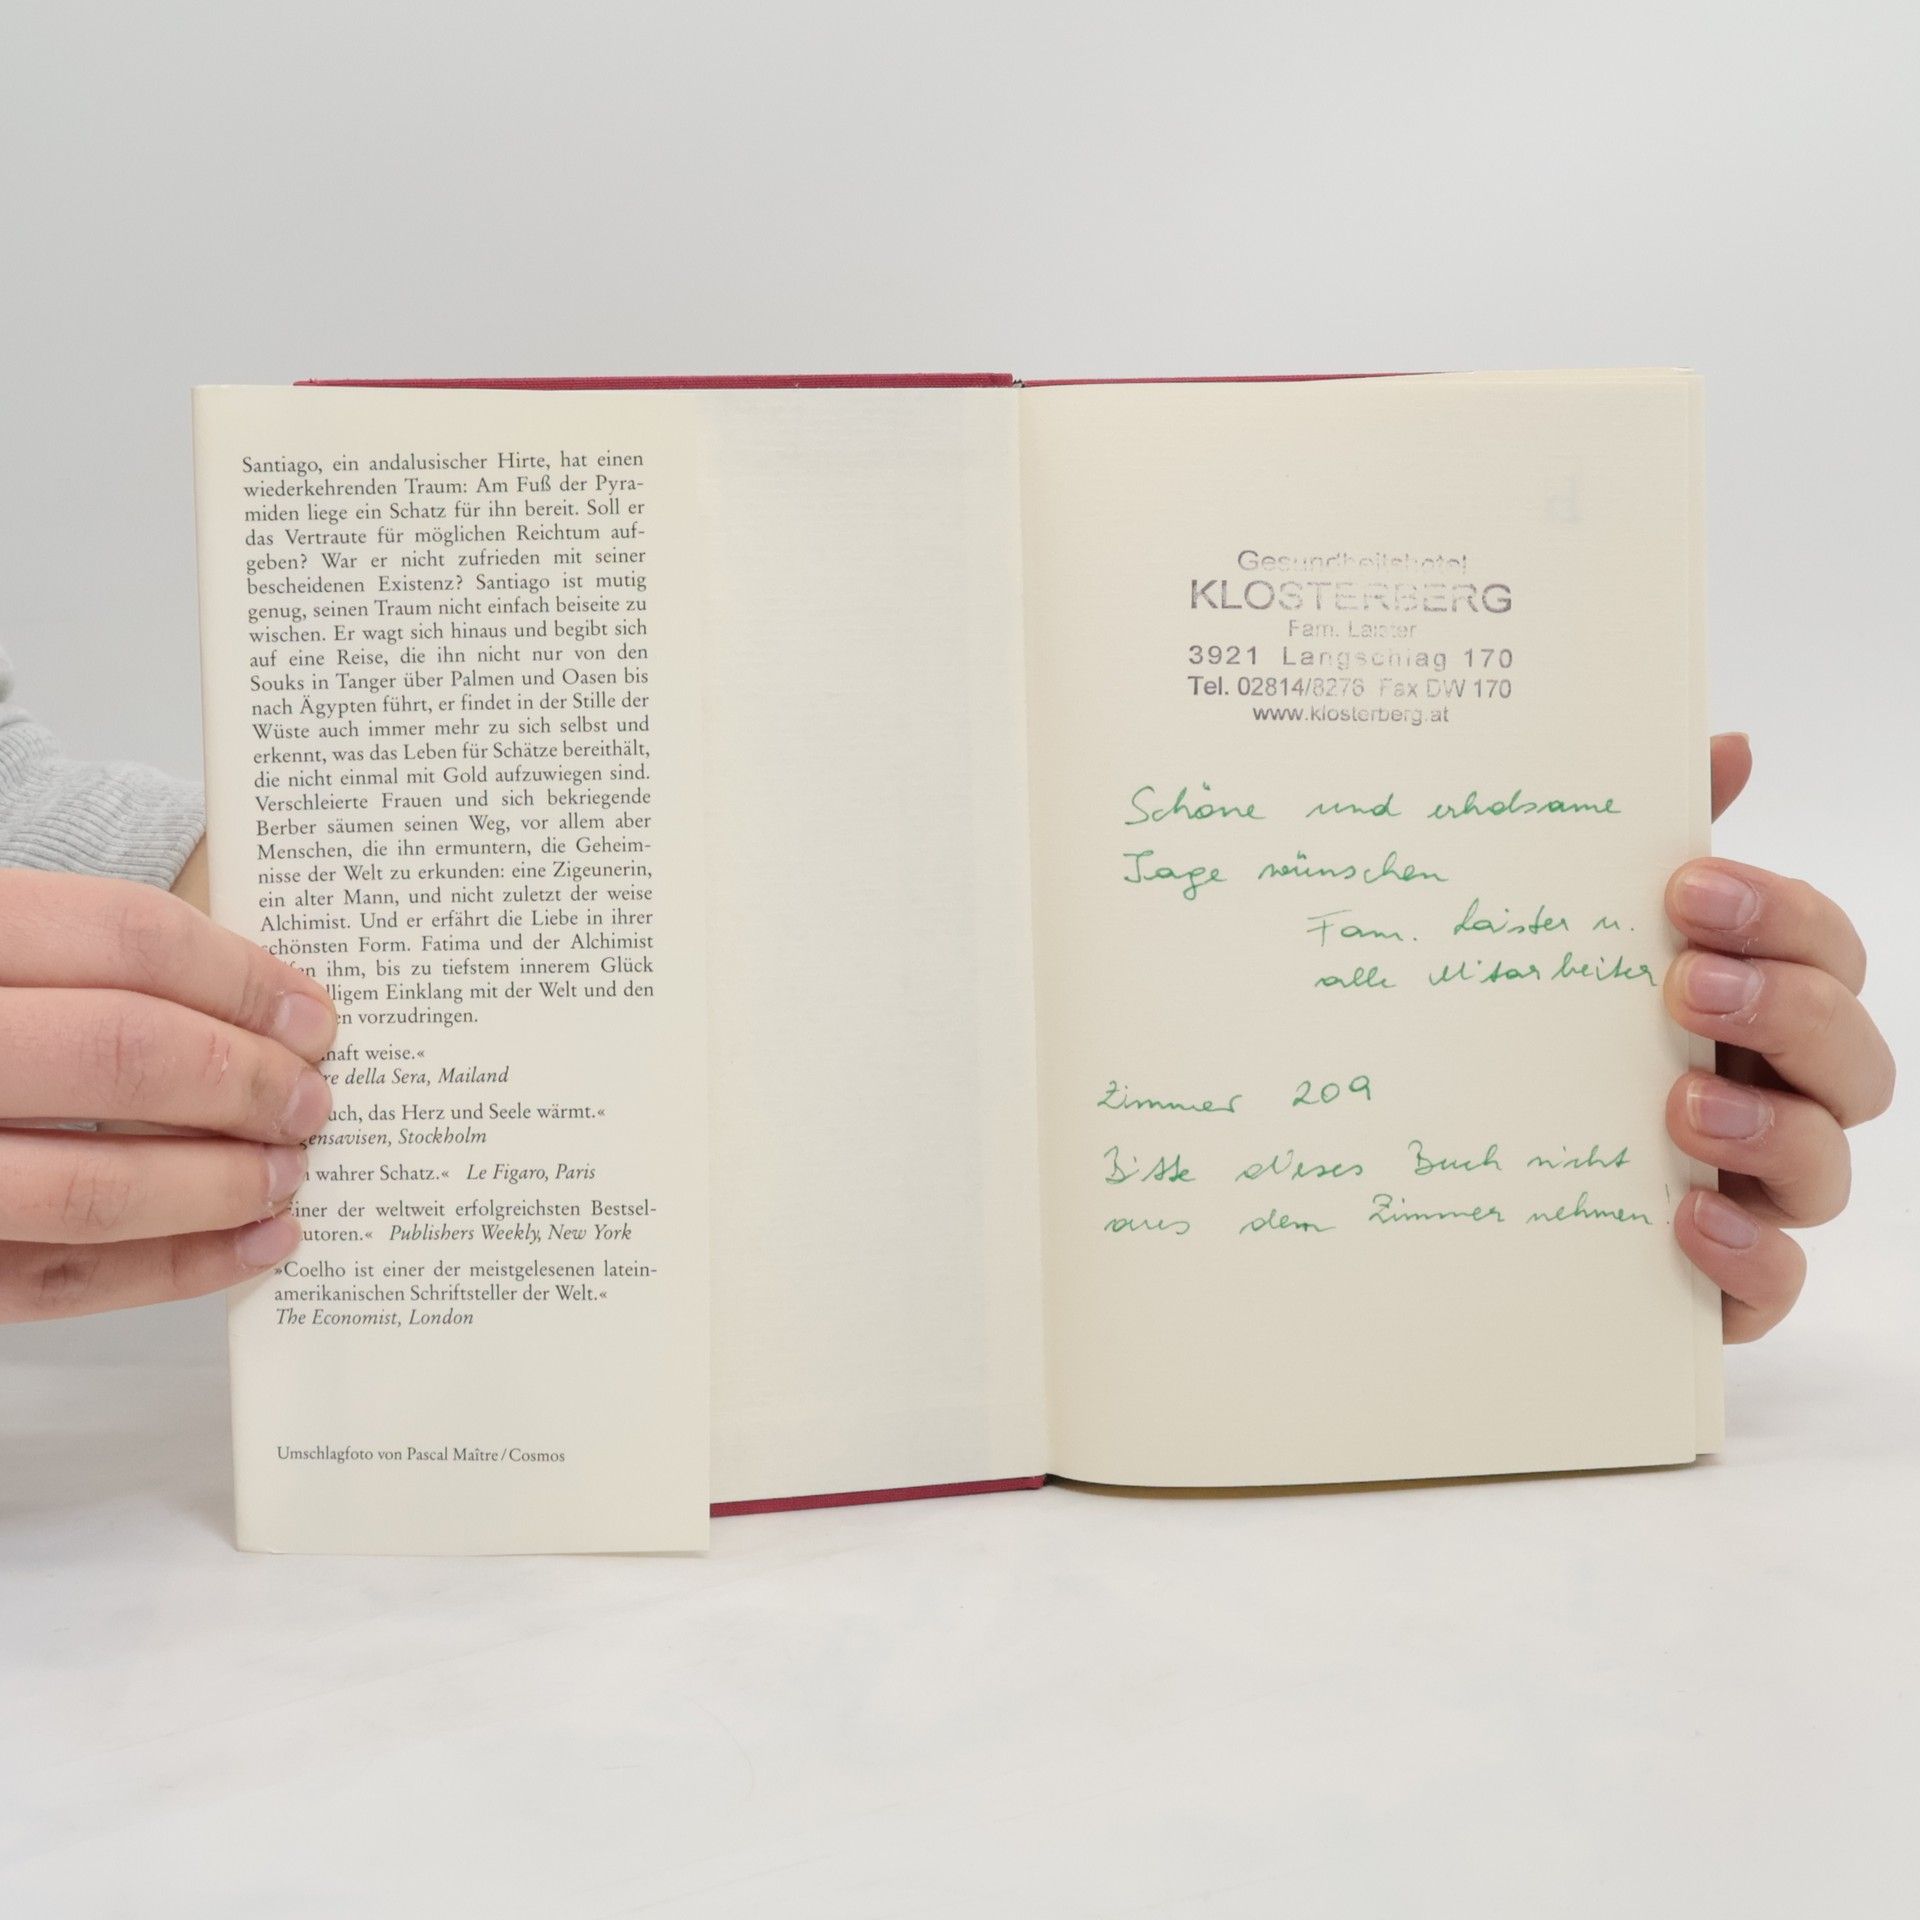 Santiago, ein andalusischer Hirte, hat einen
wiederkehrenden Traum: Am Fuß der Pyra-
miden liege ein Schatz für ihn bereit. Soll er
das Vertraute für möglichen Reichtum auf-
geben? War er nicht zufrieden mit seiner
bescheidenen Existenz? Santiago ist mutig
genug, seinen Traum nicht einfach beiseite zu
wischen. Er wagt sich hinaus und begibt sich
auf eine Reise, die ihn nicht nur von den
Souks in Tanger über Palmen und Oasen bis
nach Ägypten führt, er findet in der Stille der
Wüste auch immer mehr zu sich selbst und
erkennt, was das Leben für Schätze bereithält,
die nicht einmal mit Gold aufzuwiegen sind.
Verschleierte Frauen und sich bekriegende
Berber säumen seinen Weg, vor allem aber
Menschen, die ihn ermuntern, die Geheim-
nisse der Welt zu erkunden: eine Zigeunerin,
ein alter Mann, und nicht zuletzt der weise
Alchimist. Und er erfährt die Liebe in ihrer
schönsten Form. Fatima und der Alchimist
ihm, bis zu tiefstem innerem Glück
Einklang mit der Welt und den
vorzudringen.
weise.«
della Sera, Mailand
das Herz und Seele wärmt.«
Stockholm
wahrer Schatz.« Le Figaro, Paris
Einer der weltweit erfolgreichsten Bestsel-
utoren.« Publishers Weekly, New York
»Coelho ist einer der meistgelesenen latein-
amerikanischen Schriftsteller der Welt.«
The Economist, London
Umschlagfoto von Pascal Maître / Cosmos
Gesundheitshotel
KLOSTERBERG
Fam. Laister
3921 Langschlag 170
Tel. 02814/8276 Fax DW 170
www.klosterberg.at
Schöne und erholsame
Tage wünschen
Fam. Laister u.
alle Mitarbeiter
Zimmer 209
Bitte dieses Buch nicht
aus dem Zimmer nehmen!